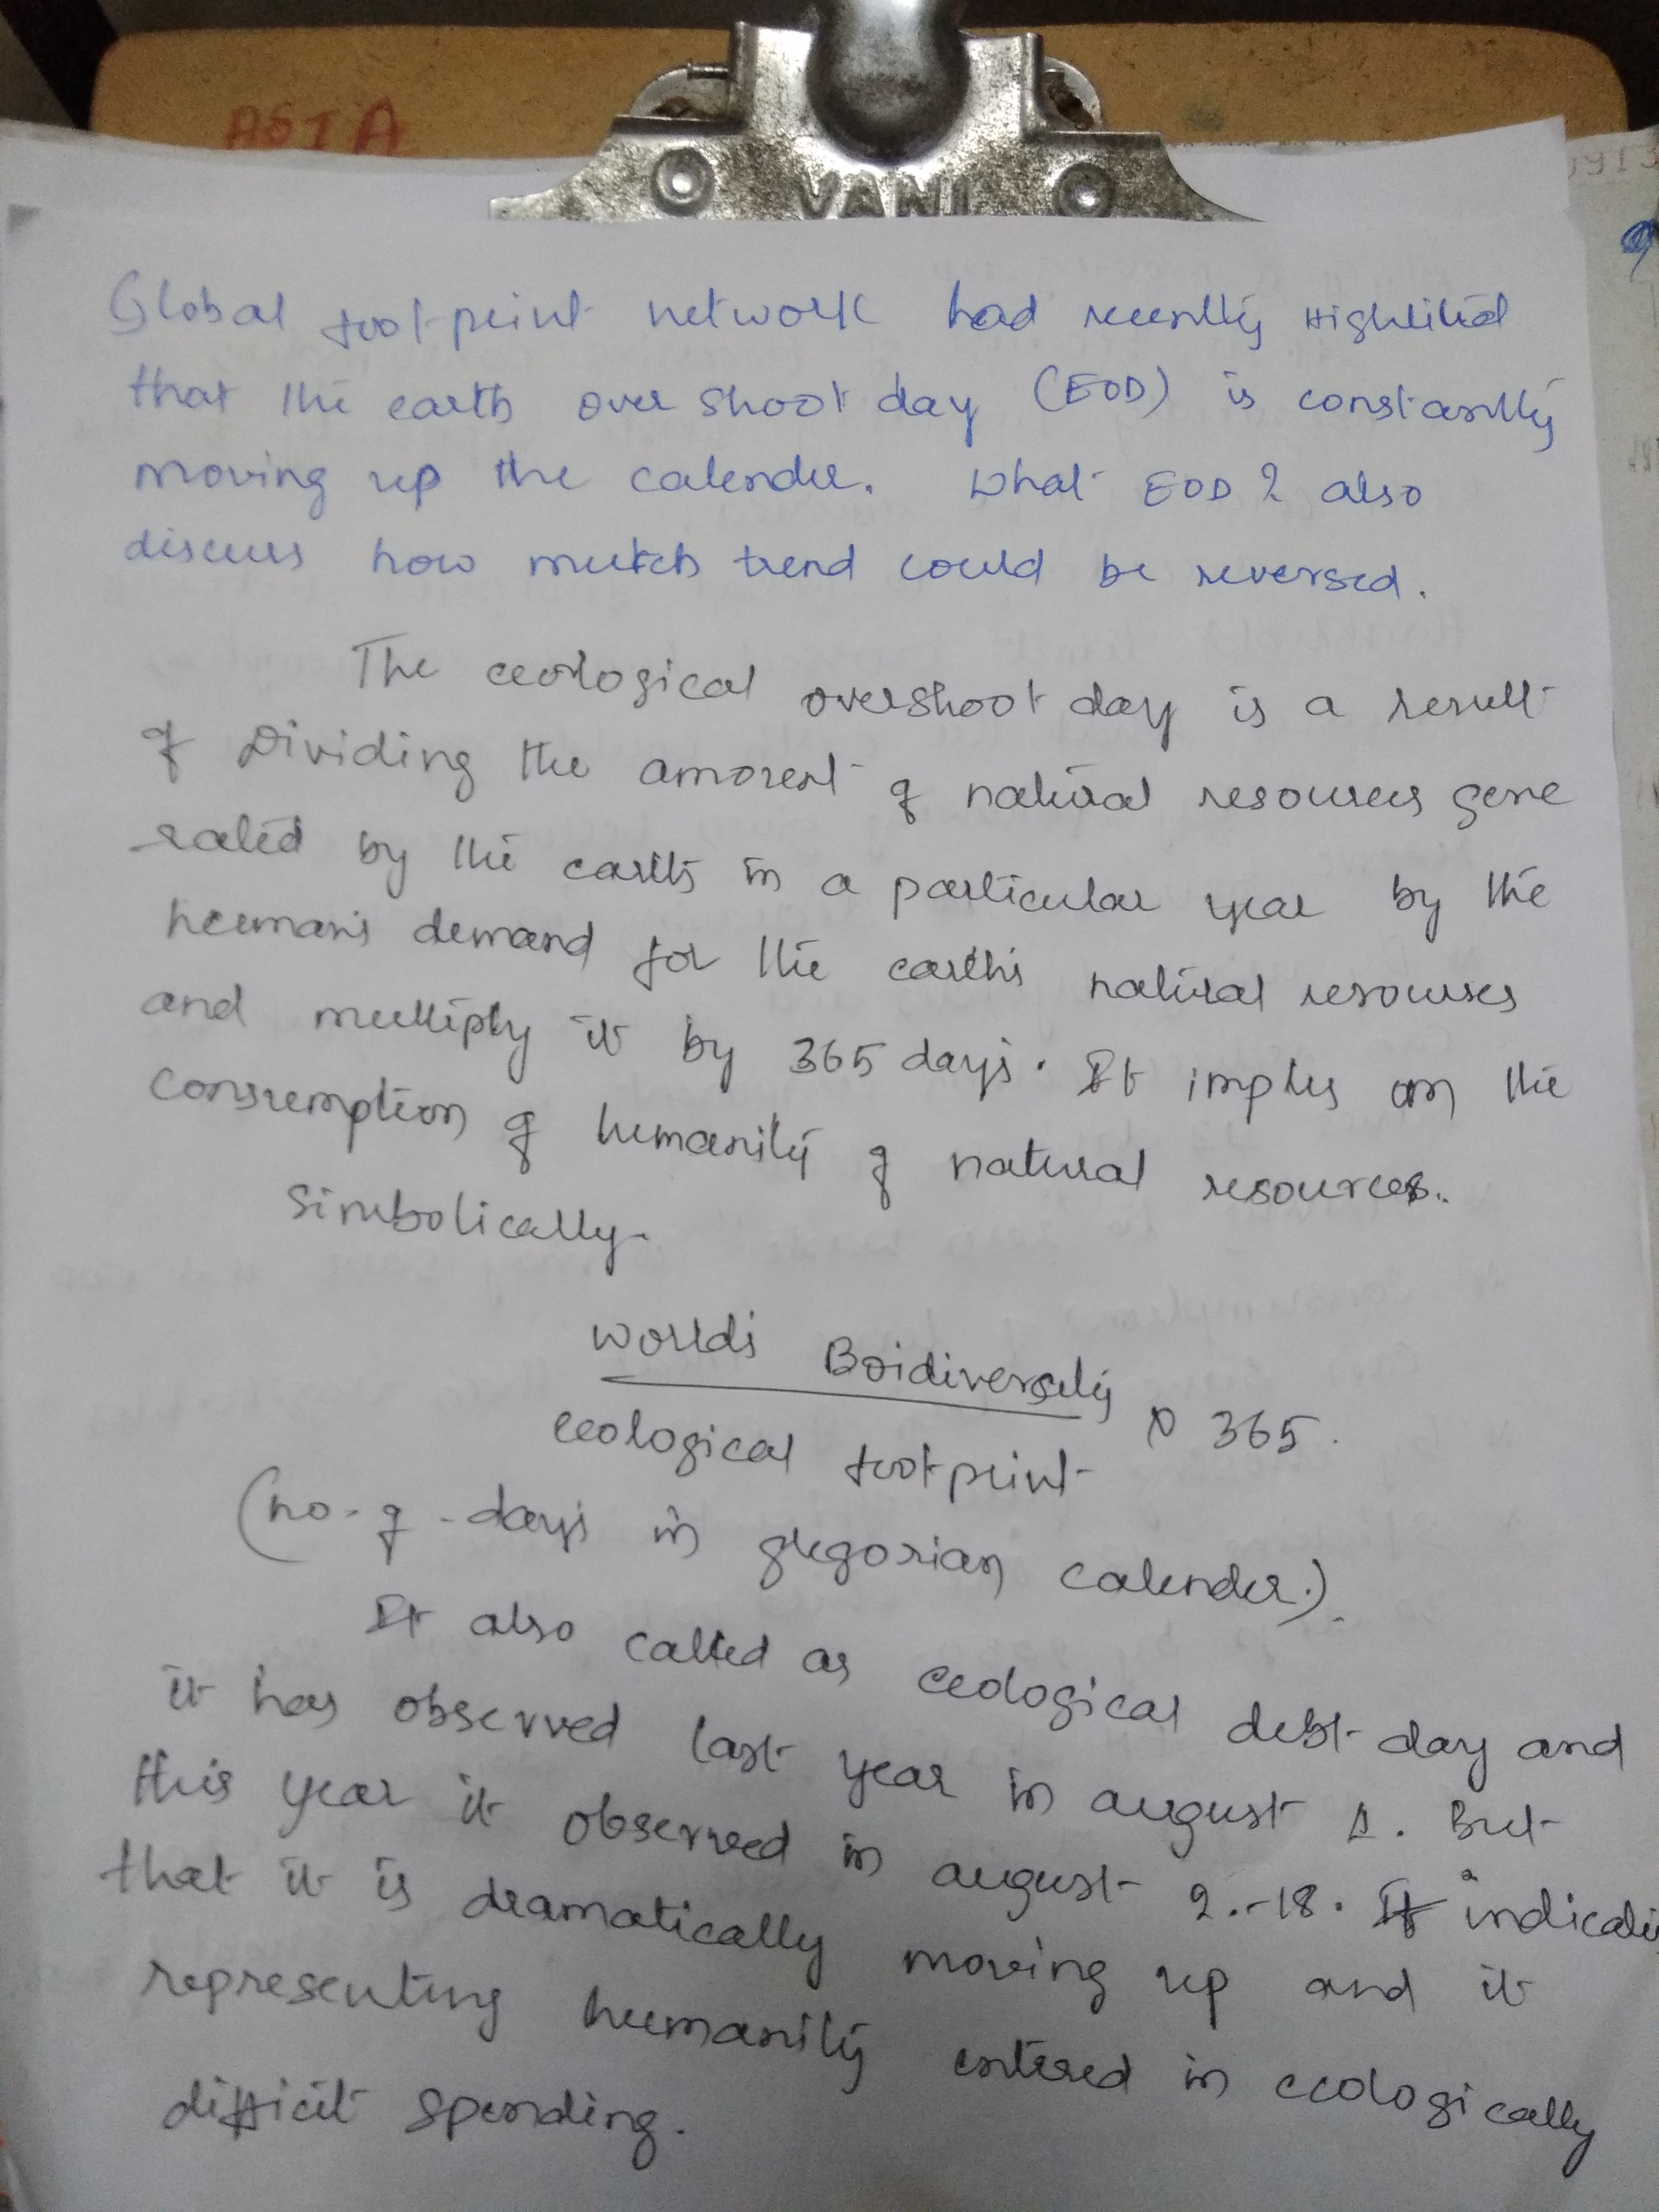 ASIA
VANI
Global footprint network had recently Highlited
that the earth over shoot day (EOD) is constantly
moving up the calender. What EOD? also
discuss how mutch trend could be reversed.
The ecological overshoot day is a result
of Dividing the amount of natural resources gene
rated by the earth in a particular year by the
human's demand for the earth's natural resourses
and multiply it by 365 days. It implys on the
consumption of humanity of natural resources.
Simbolically-
world's Boidiversity
ecological footprint x 365.
(no-of-days in gregorian calender.)
It also called as ecological debt day and
it has observed last year in august 1. But
this year it observed in august 2.-18. It indicates
that it is dramatically moving up and it
representing humanity entered in ecologically
difficit spending.